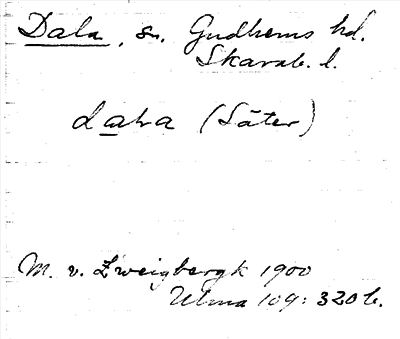 Dala, sn. Gudhems hd.
Skarab. l.
daħa (Säter)
M. v. Zweigbergk 1900
Ulma 109: 320 b.